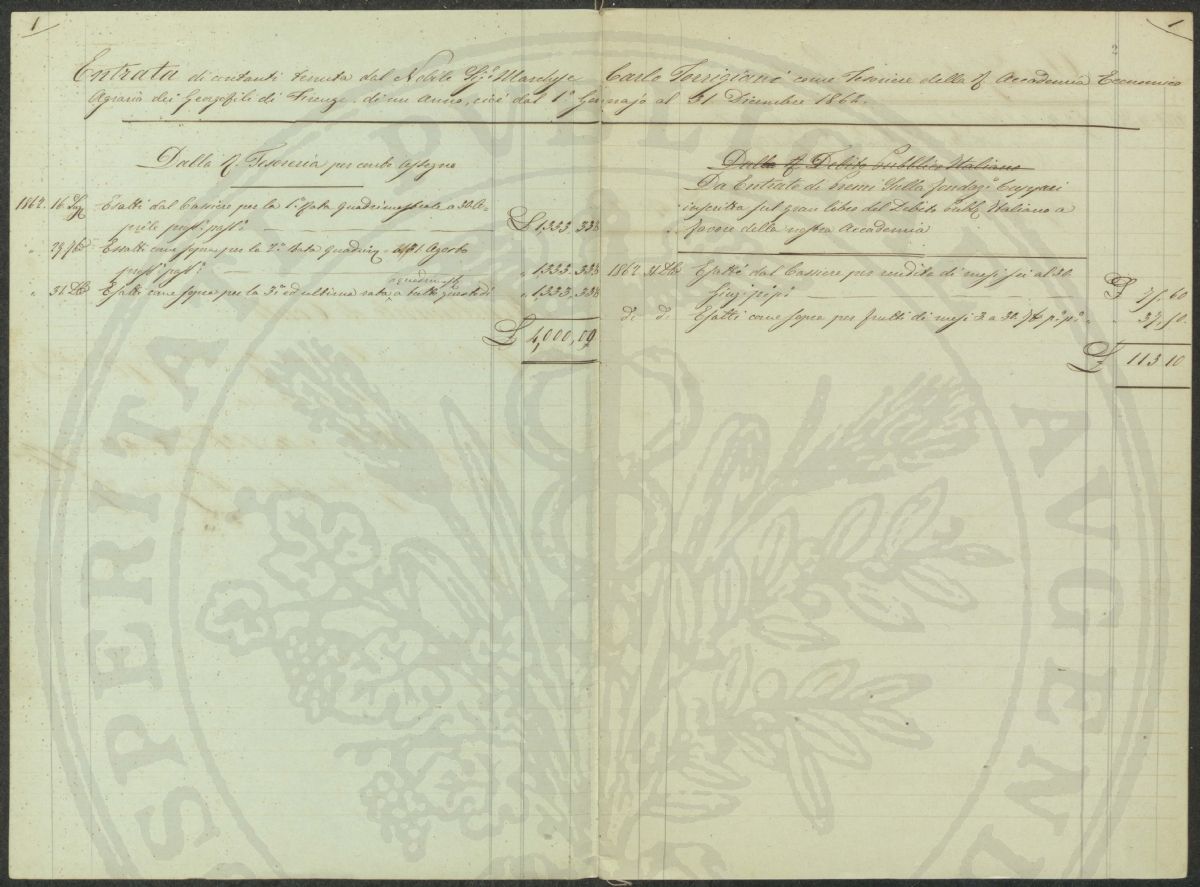 1
Entrata di contanti tenuta dal Nobile Sig.e Marchese Carlo Torrigiani come Tesoriere della R. Accademia Economico
Agraria dei Georgofili di Firenze, di un Anno, cioè dal 1º Gennajo al 31 Dicembre 1862.
Dalla R. Tesoreria per conto assegno
1862. 16 Esatti dal Cassiere per la 1ª rata quadrimestrale a 30 A-
prile pss.º pss.º £ 1333,33
" 29 Esatti come sopra per la 2ª rata quadrim. al 31 Agosto
" 1333,33
quadrimest.
" 31. Esatti come sopra per la 3ª ed ultima rata a tutto questo dì " 1333,33
£ 4,000,09
2
1
Dalla R. Debito pubblico Italiano
Da Entrate di premi sulla fondaz.e Cuppari
inscritta sul gran libro del Debito Pubb.º Italiano a
favore della nostra Accademia
1862 31 Esatti dal Cassiere per rendite di mesi sei al 30
Giug. p.º p.º £ 75,60
dº dº Esatti come sopra per frutti di mesi 3 a 30 p.º p.º " 37,50
£ 113 10
PROSPERITATI PUBLICAE AUGENDAE